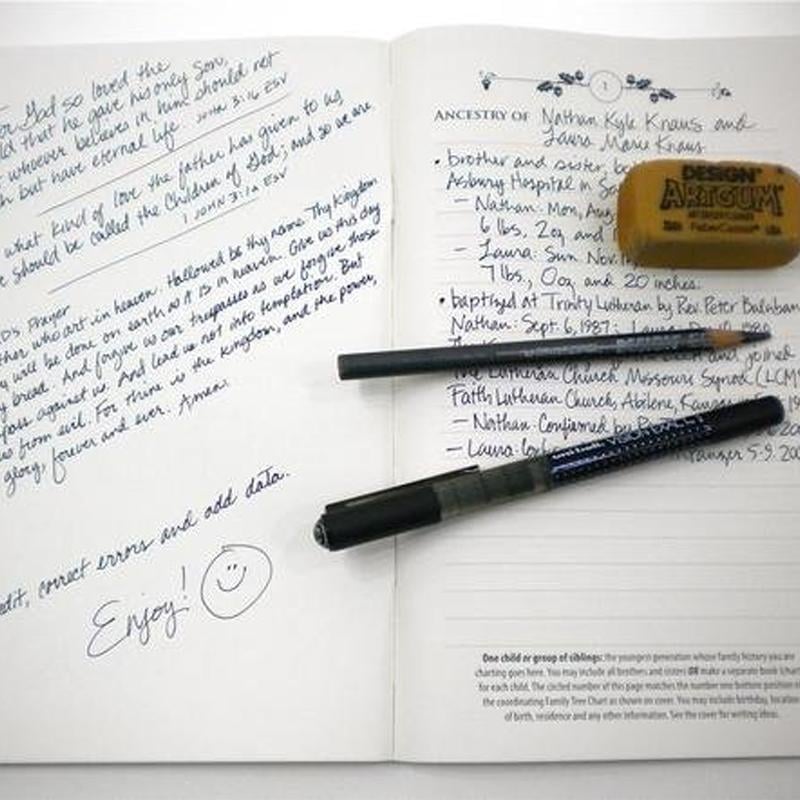 or God so loved the
ld that he gave his only Son,
t whoever believes in him should not
h but have eternal life. JOHN 3:16 ESV
what kind of love the father has given to us,
e should be called the children of God; and so we are.
1 JOHN 3:1a ESV
D's Prayer
ther who art in heaven. Hallowed be thy name. Thy Kingdom
y will be done on earth as it is in heaven. Give us this day
y bread. And forgive us our trespasses as we forgive those
pass against us. And lead us not into temptation. But
us from evil. For thine is the kingdom, and the power,
glory, forever and ever. Amen.
edit, correct errors and add data.
Enjoy!
1
ANCESTRY OF Nathan Kyle Kraus and
Laura Marie Kraus
• brother and sister, bo
Asbury Hospital in Sa
- Nathan: Mon, Aug
6 lbs, 2oz and
- Laura: Sun Nov. 1
7 lbs, 0oz and 20 inches.
• baptized at Trinity Lutheran by Rev. Peter Burnham
Nathan: Sept. 6, 1987; Laura
and joined
The Lutheran Church Missouri Synod (LCMS
Faith Lutheran Church, Abilene, Kansas
- Nathan: Confirmed by
- Laura: 5-9-200
DESIGN
ARTGUM
FaberCastell USA
One child or group of siblings: the youngest generation whose family history you are
charting goes here. You may include all brothers and sisters OR make a separate book (chart
for each child. The circled number of this page matches the number one bottom position
the coordinating Family Tree Chart as shown on cover. You may include birthday, location
of birth, residence and any other information. See the cover for writing ideas.